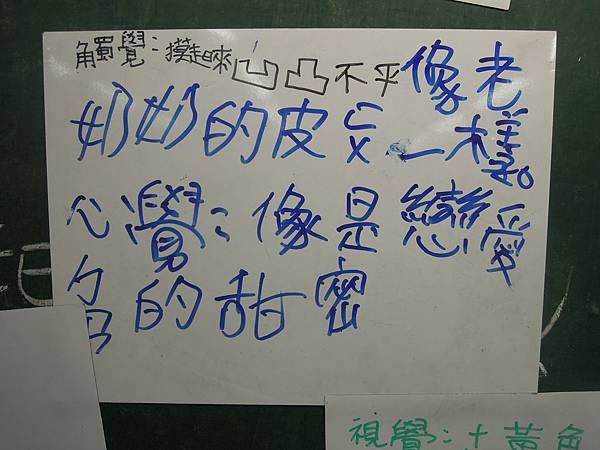 觸覺:摸起來凹凸不平像老
奶奶的皮ㄈㄨ一樣。
心覺:像是戀愛
ㄅㄢ的甜密
視覺:土黃色